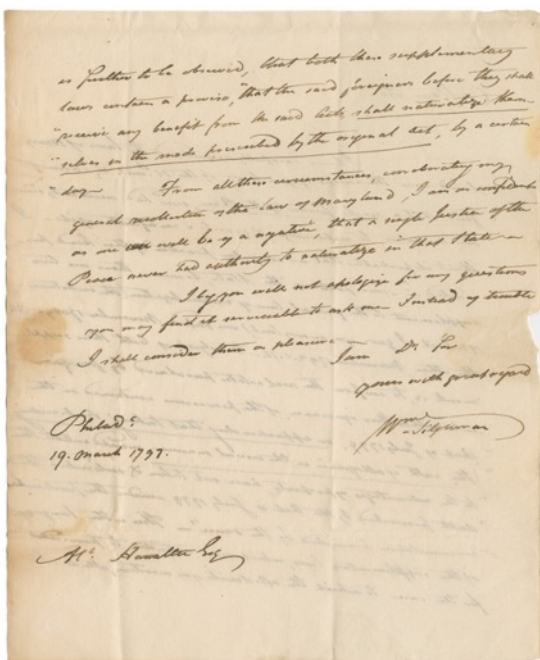 is further to be observed, that both these supplementary
laws contain a proviso, "that the said foreigners before they shall
"receive any benefit from the said Acts, shall naturalize them-
"selves in the mode prescribed by the original Act, by a certain
"day— From all these circumstances, corroborating my
general recollection of the Law of Maryland, I am as confident
as one well can be of a negative, that a single Justice of the
Peace never had authority to naturalize in that State—
I beg you will not apologize for any questions
you may find it serviceable to ask me. Instead of trouble
I shall consider them a pleasure—
I am Dr Sir
yours with great regard
Wm Tilghman
Philada
19. March 1797.
Alr. Hamilton Esq